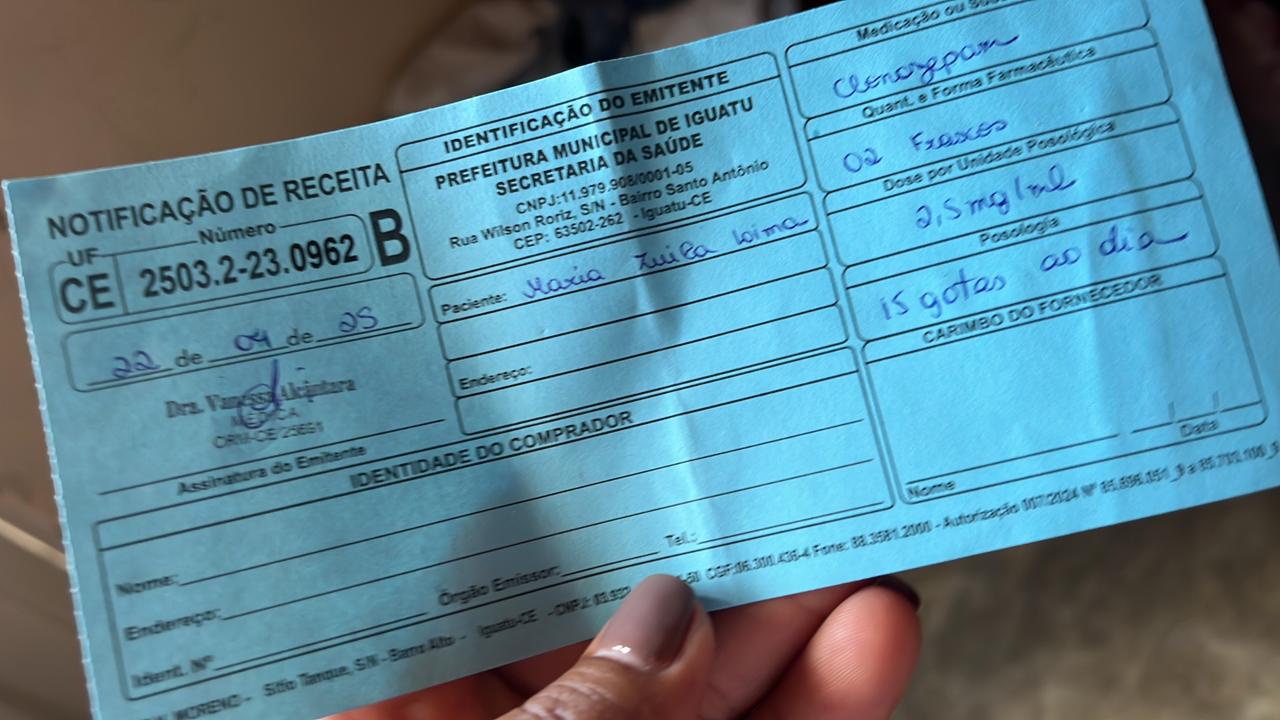 NOTIFICAÇÃO DE RECEITA
UF
Número
CE
2503.2-23.0962
B
22 de 04 de 25
Dra. Vanessa Alcântara
MÉDICA
CRM-CE
Assinatura do Emitente
IDENTIFICAÇÃO DO EMITENTE
PREFEITURA MUNICIPAL DE IGUATU
SECRETARIA DA SAÚDE
CNPJ:11.979.908/0001-05
Rua Wilson Roriz, S/N - Bairro Santo Antônio
CEP: 63502-262 - Iguatu-CE
Paciente: Maria Zuila Lima
Endereço:
Medicação ou
Clonazepam
Quant. e Forma Farmacêutica
02 Frascos
Dose por Unidade Posológica
2,5mg/ml
Posologia
15 gotas ao dia
CARIMBO DO FORNECEDOR
Nome
Data
IDENTIDADE DO COMPRADOR
Nome:
Endereço:
Ident. Nº
Órgão Emissor:
Tel.:
MORENO - Sítio Tanque, S/N - Barro Alto - Iguatu-CE - CNPJ: CGF:06.300.436-4 Fone: 88.3581.2000 - Autorização 007/2024 Nº